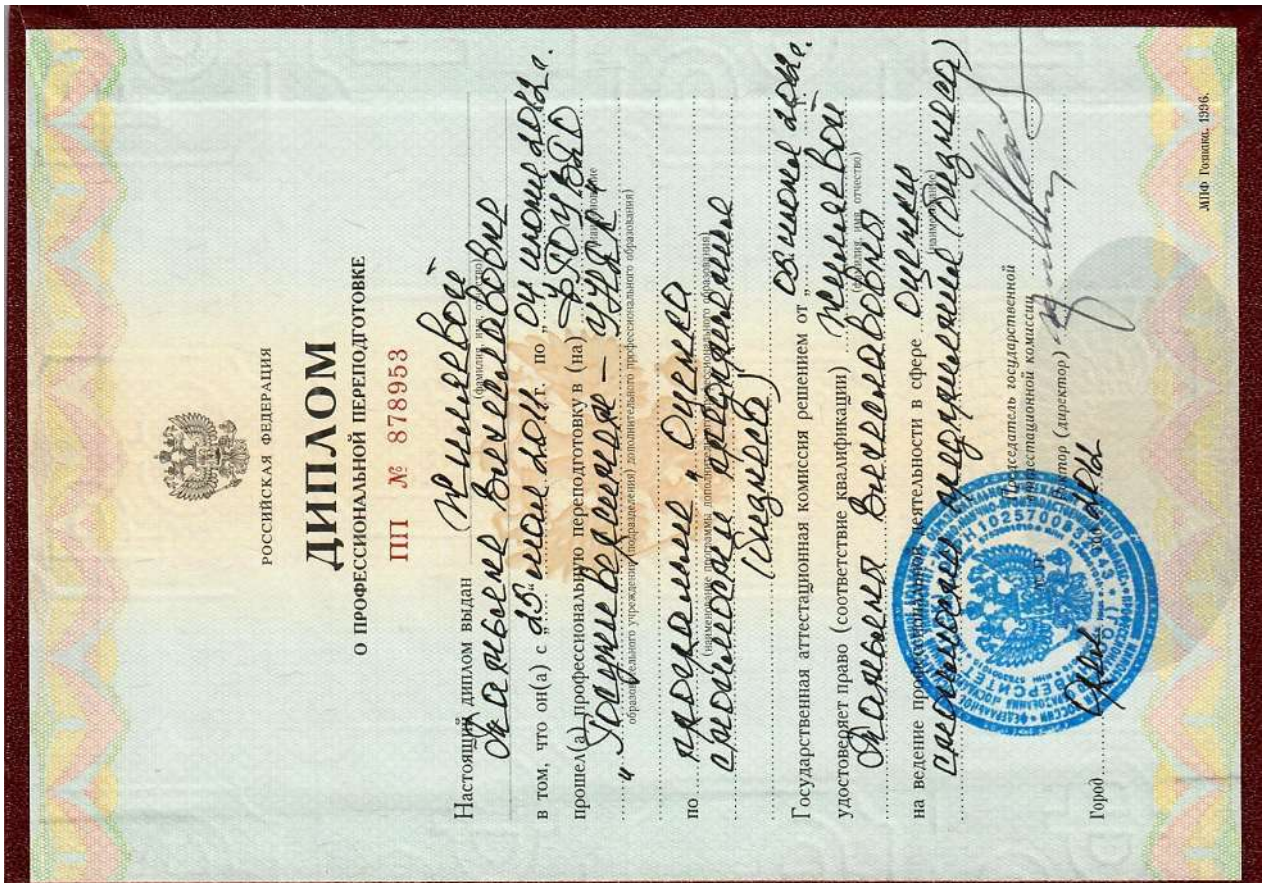 РОССИЙСКАЯ ФЕДЕРАЦИЯ
ДИПЛОМ
О ПРОФЕССИОНАЛЬНОЙ ПЕРЕПОДГОТОВКЕ
ПП № 878953
Настоящий диплом выдан
(фамилия, имя, отчество)
Татьяне Вячеславовне
в том, что он(а) с „25“ мая 2011 г. по „04“ июня 2012 г.
прошел(а) профессиональную переподготовку в (на) ФГОУ ВПО
(наименование
„Госуниверситет – УНПК“
образовательного учреждения (подразделения) дополнительного профессионального образования)
по программе „Оценка
(наименование программы дополнительного профессионального образования)
стоимости предприятия
(бизнеса)“
Государственная аттестационная комиссия решением от „ 05 июня 2012 г.
удостоверяет право (соответствие квалификации)
(фамилия, имя, отчество)
Татьяны Вячеславовны
на ведение профессиональной деятельности в сфере оценки
(наименование)
стоимости предприятия (бизнеса)
Председатель государственной
аттестационной комиссии
Ректор (директор)
Город Орел 2012
МПФ Гознака. 1996.